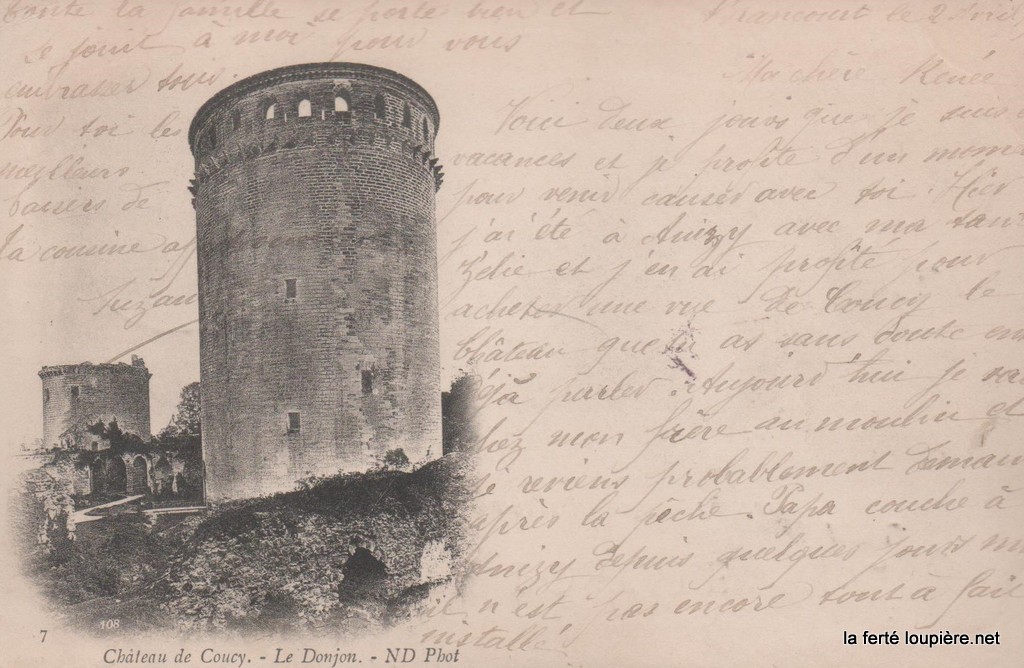 Brancourt le 2 Avril
Ma chère Renée
Voici deux jours que je suis
vacances et je profite d'un mome
pour venir causer avec toi. Hier
j'ai été à Anizy avec ma tan
Zélie et j'en ai profité pour
acheter une vue de Coucy le
Château que tu as sans doute en
déjà parler. Aujourd'hui je
chez mon frère au moulin et
je reviens probablement demain
après la pêche. Papa couche à
Anizy depuis quelques jours m
il n'est pas encore tout à fait
installé
toute la famille se porte bien et
se joint à moi pour vous
embrasser tous.
Pour toi les
meilleurs
baisers de
la cousine
Suzan
7
108
Château de Coucy. - Le Donjon. - ND Phot
la ferté loupière.net